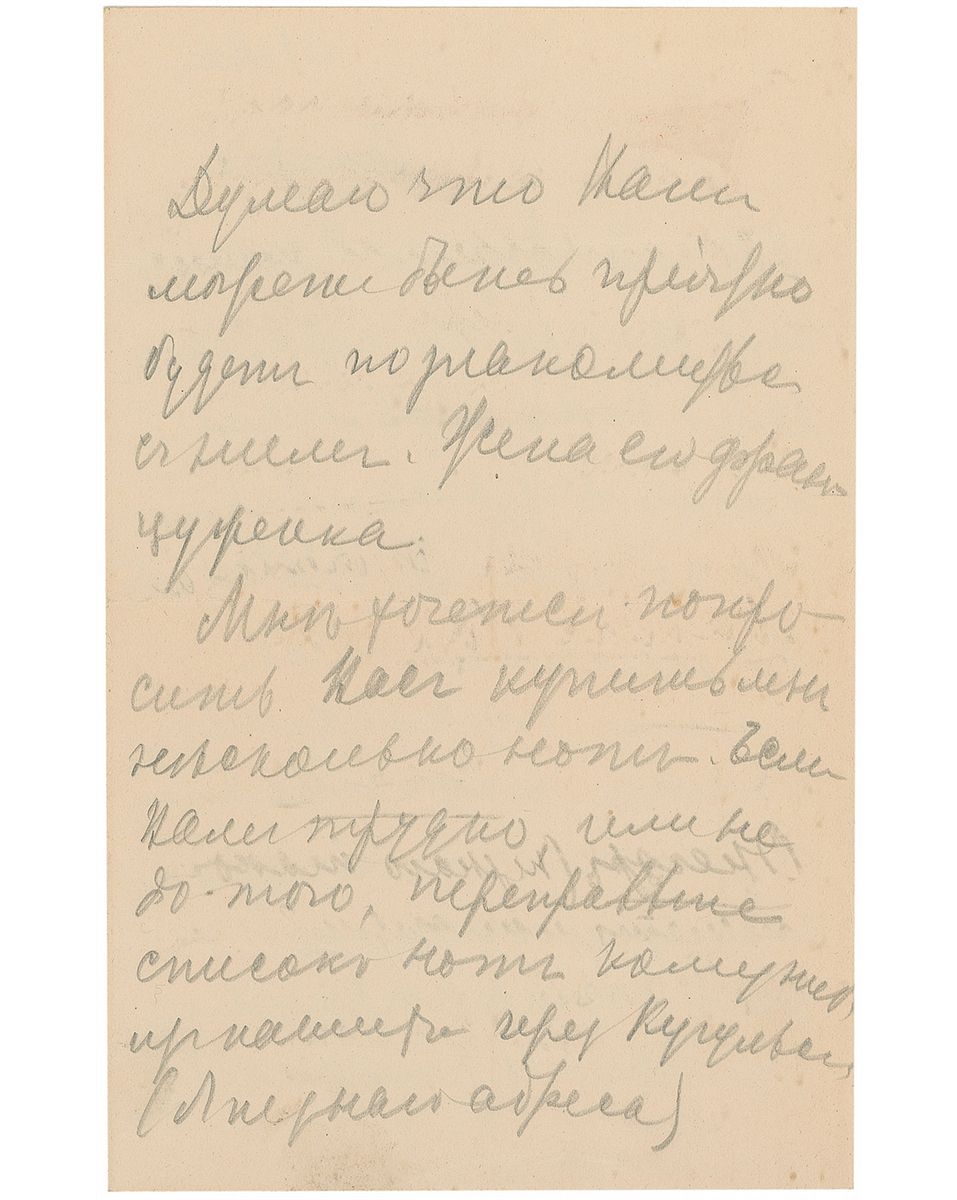 Думаю что Вам
можетъ быть пріятно
будетъ познакомиться
съ нимъ. Жена его фран-
цуженка.
Мнѣ хочется попро-
сить Васъ купить мнѣ
нѣсколько нотъ. Если
Вамъ трудно или не
до того, переправьте
списокъ нотъ
через
(Я не знаю адреса)